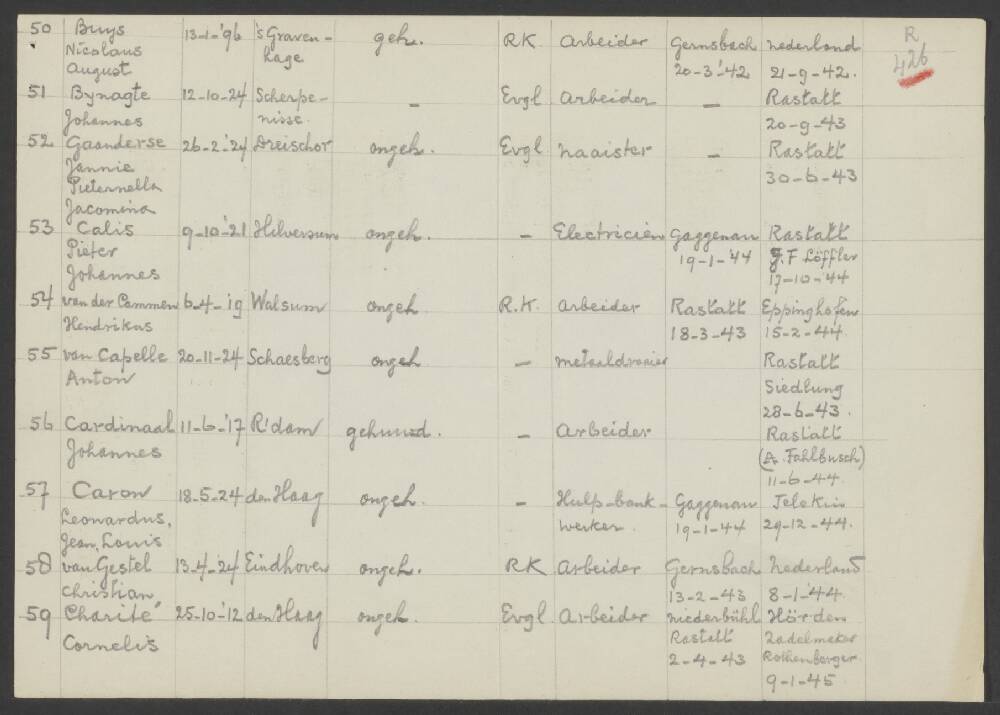 50 Buys 13-1-'96 's Graven- geh. RK Arbeider Gernsbach Nederland R
Nicolaus hage 20-3-'42 21-9-42. 426
August
51 Bynagte 12-10-24 Scherpe- - Evgl Arbeider - Rastatt
Johannes nisse. 20-9-43
52 Gaanderse 26-2-'24 Dreischor ongeh. Evgl Naaister - Rastatt
Jannie 30-6-43
Pieternella
Jacomina
53 Calis 9-10-'21 Hilversum ongeh. - Electricien Gaggenau Rastatt
Pieter 19-1-'44 J.F Löffler
Johannes 17-10-'44
54 van der Cammen 6-4-'19 Walsum ongeh R.K. Arbeider Rastatt Eppinghofen
Hendrikus 18-3-43 15-2-44.
55 van Capelle 20-11-24 Schaesberg ongeh - metaaldraaier Rastatt
Anton Siedlung
28-6-43.
56 Cardinaal 11-6-'17 R'dam gehuwd. - Arbeider Rastatt
Johannes (A. Fahlbusch)
11-6-44
57 Caron 18-5-24 den Haag ongeh. - Hulp-bank- Gaggenau
Leonardus, werker. 19-1-44 29-12-44.
Jean, Louis
58 van Gestel 13-4-'24 Eindhoven ongeh. RK Arbeider Gernsbach Nederland
Christian 13-2-43 8-1-'44
59 Charité 25-10-'12 den Haag ongeh. Evgl. Arbeider Niederbühl Hörden
Cornelis Rastatt Zadelmaker
2-4-43 Rothenberger
9-1-45.